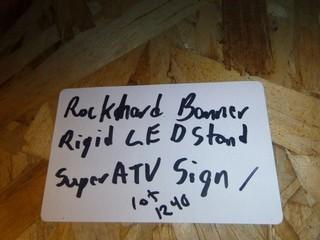 Rockhard Banner
Rigid LED Stand
Super ATV Sign /
lot
1240